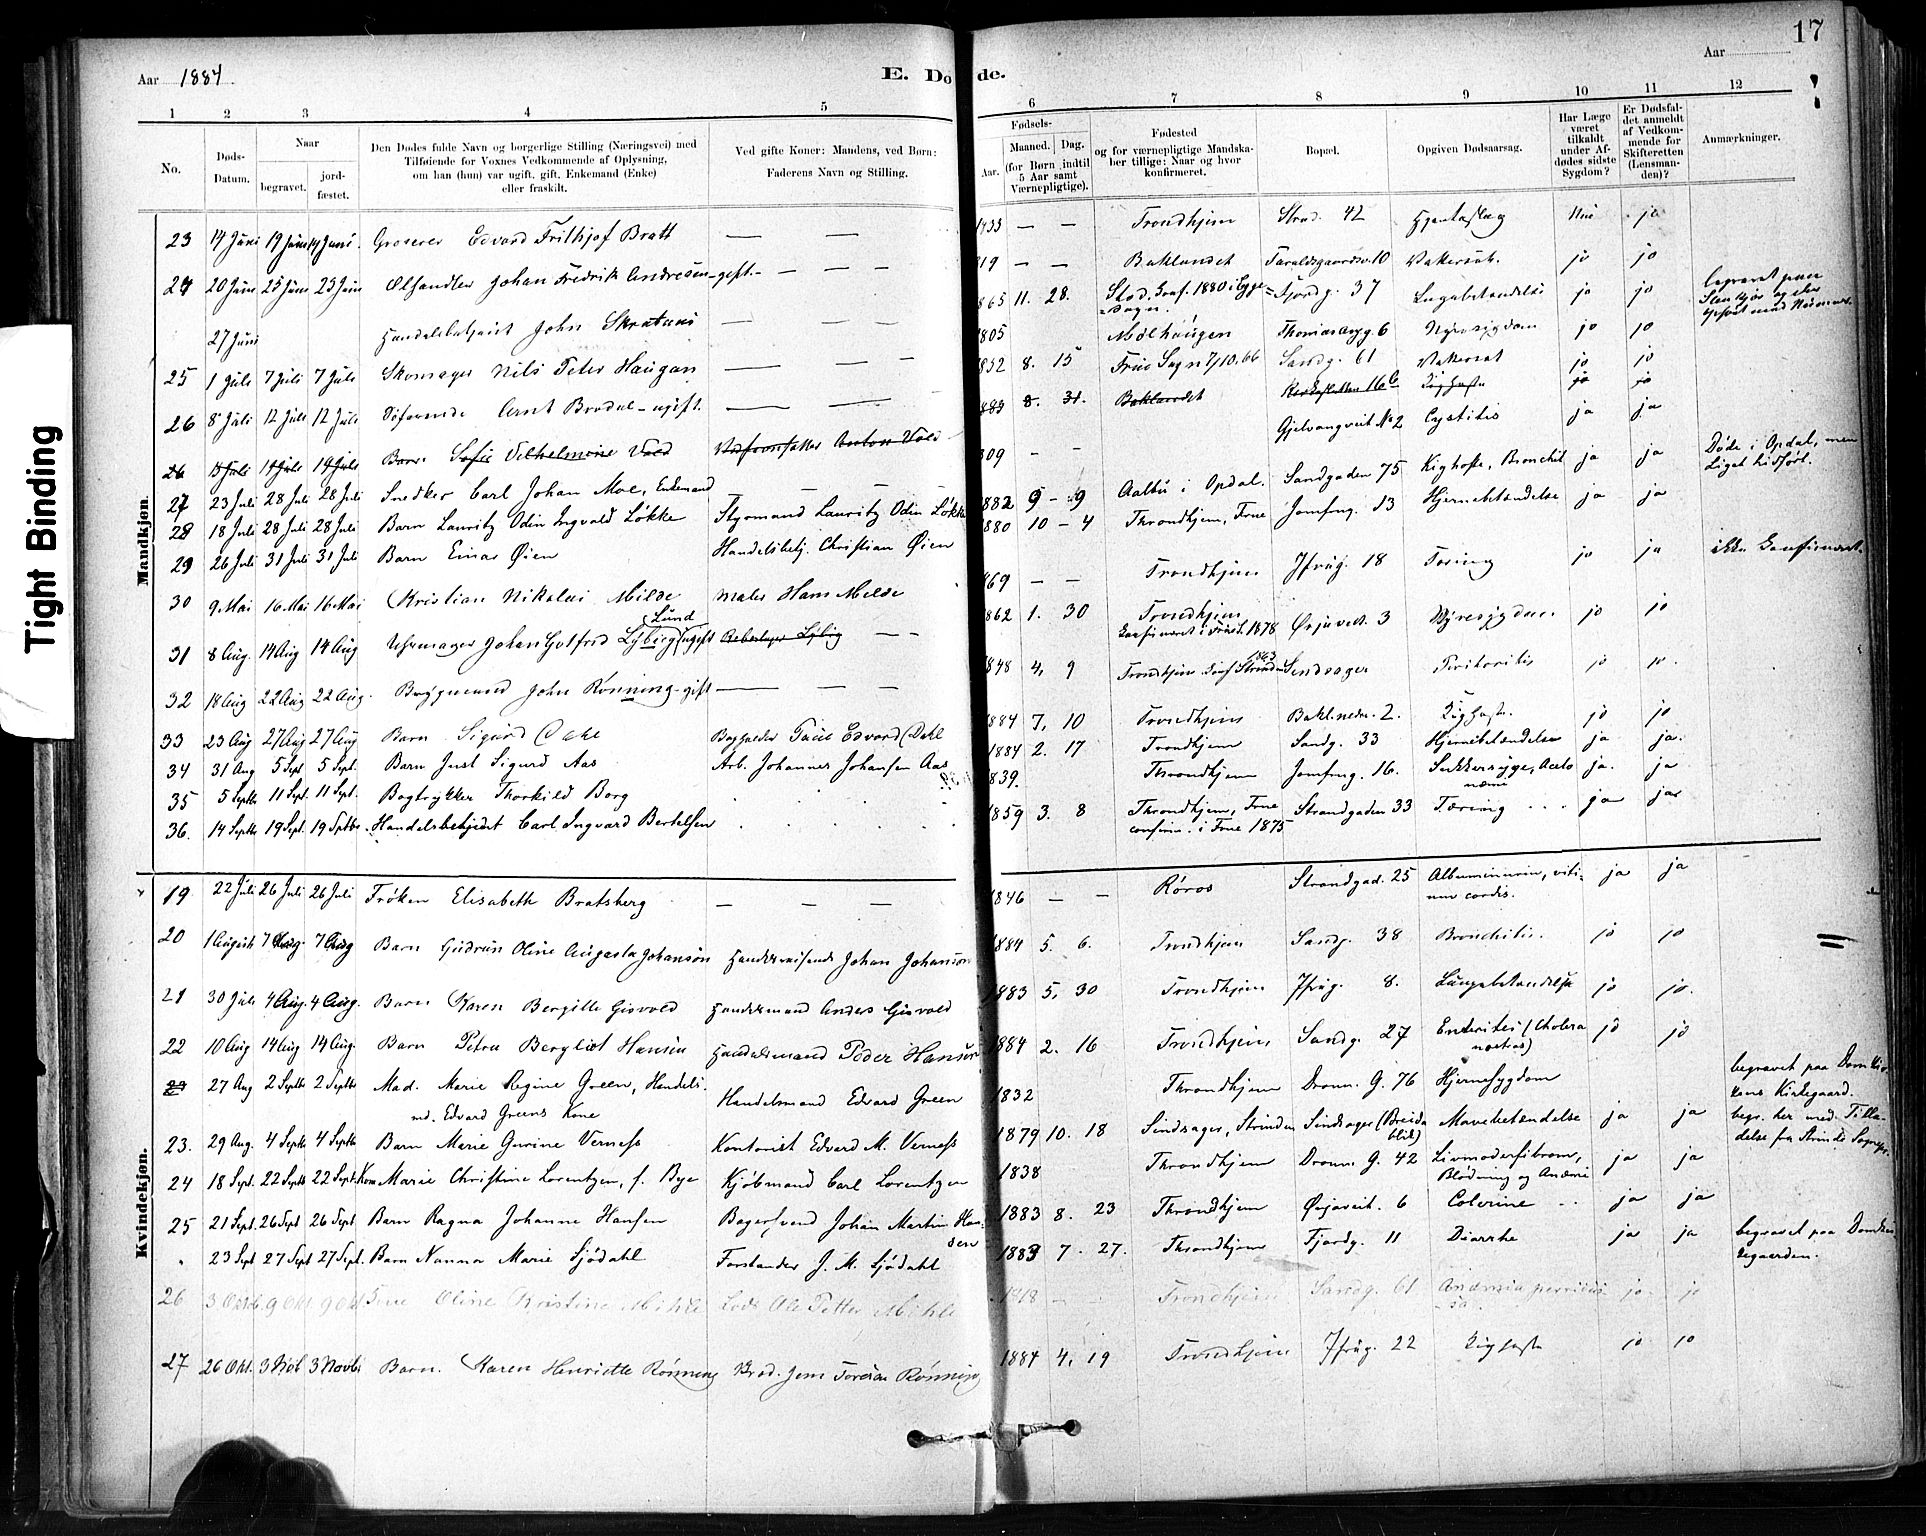 17
Aar 1884.
E. Do de.
Aar
1 2 3 4 5 6 7 8 9 10 11 12
No.
Døds-Datum.
Naar
begravet.
jord-fæstet.
Den Dødes fulde Navn og borgerlige Stilling (Næringsvei) med
Tilføiende for Voxnes Vedkommende af Oplysning,
om han (hun) var ugift, gift, Enkemand (Enke)
eller fraskilt.
Ved gifte Koner: Mandens, ved Børn:
Faderens Navn og Stilling.
Fødsels-
Aar.
Maaned.
Dag.
(for Børn indtil
5 Aar samt
Værnepligtige).
Fødested
og for værnepligtige Mandska-
ber tillige: Naar og hvor
konfirmeret.
Bopæl.
Opgiven Dødsaarsag.
Har Læge
været
tilkaldt
under Af-
dødes sidste
Sygdom?
Er Dødsfal-
det anmeldt
af Vedkom-
mende for
Skifteretten
(Lensman-
den)?
Anmærkninger.
Tight Binding
Mandkjøn.
23 14 Juni 19 Juni 19 Juni. Groserer Edvard Frithjof Bratt — — 1833 — — Trondhjem Strad. 42 Hjerteslag Nei ja
24 20 Juni 25 Juni 25 Juni Ølhandler Johan Fredrik Andresen - gift. — — — 819 — — Baklandet 10 ja ja
27 Juni Handelsbetjent John — — 865 11. 28. 1880 Fjordg. 37 ja ja begravet paa
25 1 Juli 7 Juli 7 Juli Skomager Nils Peter Haugan — — — 805 Mølhaugen Thomasangg. 6 ja ja
26 8 Juli 12 Juli 12 Juli Søfarende Arnt Brodal - ugift. — — 852 8. 15 Frue Sogn 7/10. 66 Sandg. 61 ja ja
26 15 Juli 19 Juli 19 Juli Barn Sofie Vilhelmine Vold Anton Vold 883 8. 31. Baklandet 16 b Kighoste ja ja
27 23 Juli 28 Juli 28 Juli Snedker Carl Johan Moe, Enkemand — — 809 Gjelvangveit No 2 Cystitis ja ja
28 18 Juli 28 Juli 28 Juli Barn Lauritz Odin Ingvald Løkke Styrmand Lauritz Odin Løkke 1882 9 - 9 Aalbu i Opdal. Sandgaden 75 Kighoste, Bronchit ja ja Døde i Opdal, men
Liget hidført.
29 26 Juli 31 Juli 31 Juli Barn Einar Øien Handelsbetj. Christian Øien 880 10 - 4 Throndhjem, Frue Jomfrug. 13 Hjernebetændelse ja ja
30 9 Mai 16 Mai 16 Mai Kristian Nikolai Milde Maler Hans Milde 869 — — Trondhjem Ifrug. 18 Tæring jo ja ikke konfirmeret.
Lund
31 8 Aug. 14 Aug 14 Aug Uhrmager Johan Gotfred Lyberg ugift — — 862 1. 30 Trondhjem
1878 Ørjaveit. 3 Nyresygdom jo jo
32 18 Aug 22 Aug 22 Aug. Brygmand John Rønning - gift — — — 1848 4, 9 Trondhjem Peritonitis jo jo.
33 23 Aug 27 Aug 27 Aug Barn Sigurd Dahl Bogholder Edvard Dahl 1884 7, 10 Trondhjem Bakl. nedr. 2. Kighoste. jo jo
34 31 Aug 5 Sept 5 Sept. Barn Just Sigurd Aas Arb. Johannes Johansen Aas 1884 2. 17 Trondhjem Sandg. 33 Hjernebetændelse ja ja.
35 5 Septb 11 Sept. 11 Sept. Bogtrykker Thorkild Borg 839. Throndhjem Jomfrug. 16. Sukkersyge, Aceto
næmi ja. ja
36. 14 Septb 19 Sept. 19 Sptbr. Handelsbetjent Carl Ingvard Bertelsen 1859 3. 8 Throndhjem, Frue
confirm. i Frue 1875 Strandgaden 33 Tæring ja ja
Kvindekjøn.
19 22 Juli 26 Juli 26 Juli Frøken Elisabeth Bratsberg — — — 1846 — — Røros Strandgad. 25 Albuminurin, viti-
um cordis. ja ja
20 1 August 7 Aug. 7 Aug Barn Gudrun Oline Augusta Johanson Handelsreisende Johan Johanson 1884 5. 6. Trondhjem Sandg. 38 Bronchitis. jo jo
21 30 Juli 4 Aug. 4 Aug. Barn Karen Bergitte Gisvold Handelsmand Anders Gisvold 1883 5, 30 Trondhjem Ifrug. 8. Lungebetændelse jo jo.
22 10 Aug 14 Aug 14 Aug. Barn Petra Bergliot Hansen Handelsmand Peder Hansen 1884 2. 16 Trondhjem Sandg. 27 Enteritis (Cholera
nostras) jo jo
23 27 Aug 2 Septb 2 Septb Mad. Marie Regine Green, Handels-
md. Edvard Greens Kone Handelsmand Edvard Green 1832 Throndhjem Dronn. G. 76 Hjernesygdom begravet paa Domkir-
kens Kirkegaard.
23. 29 Aug. 4 Septb 4 Septb Barn Marie Gurine Verness Kontorist Edvard M. Verness 1879 10. 18 Sindsager, Strinden Sindsager (Breida
blik) Mavebetændelse ja ja begr. her med Tilla-
delse fra Strinds Sognepr.
24 18 Sept. 22 Septb 22 Sept. Kone Marie Christine Lorentzen, f. Bye Kjøbmand Carl Lorentzen 1838 Throndhjem Dronn. G. 42 Livmoderfibrom,
Blødning og Anæmi ja ja
25 21 Sept. 26 Sept 26 Sept. Barn Ragna Johanne Hansen Bagersvend Johan Martin Han-
sen 1883 8. 23 Throndhjem Ørjaveit. 6 Colerine ja ja
" 23 Sept 27 Sept 27 Sept. Barn Nanna Marie Sjødahl Forstander J. M. Sjødahl 1883 7. 27. Throndhjem Fjordg. 11 Diarrhe ja ja begravet paa Domkir-
kegaarden.
26 3 Oktob. 9 Okt. 9 Okt. Oline Kristine Mihle Lods Ole Petter Mihle 1818 — Trondhjem Sandg. 61 Anæmia pernicio-
sa. jo jo
27 26 Okt. 3 Novb 3 Novbr Barn. Karen Henriette Rønning Rønning 1884 4, 19 Trondhjem Ifrug. 22 Kighoste jo jo